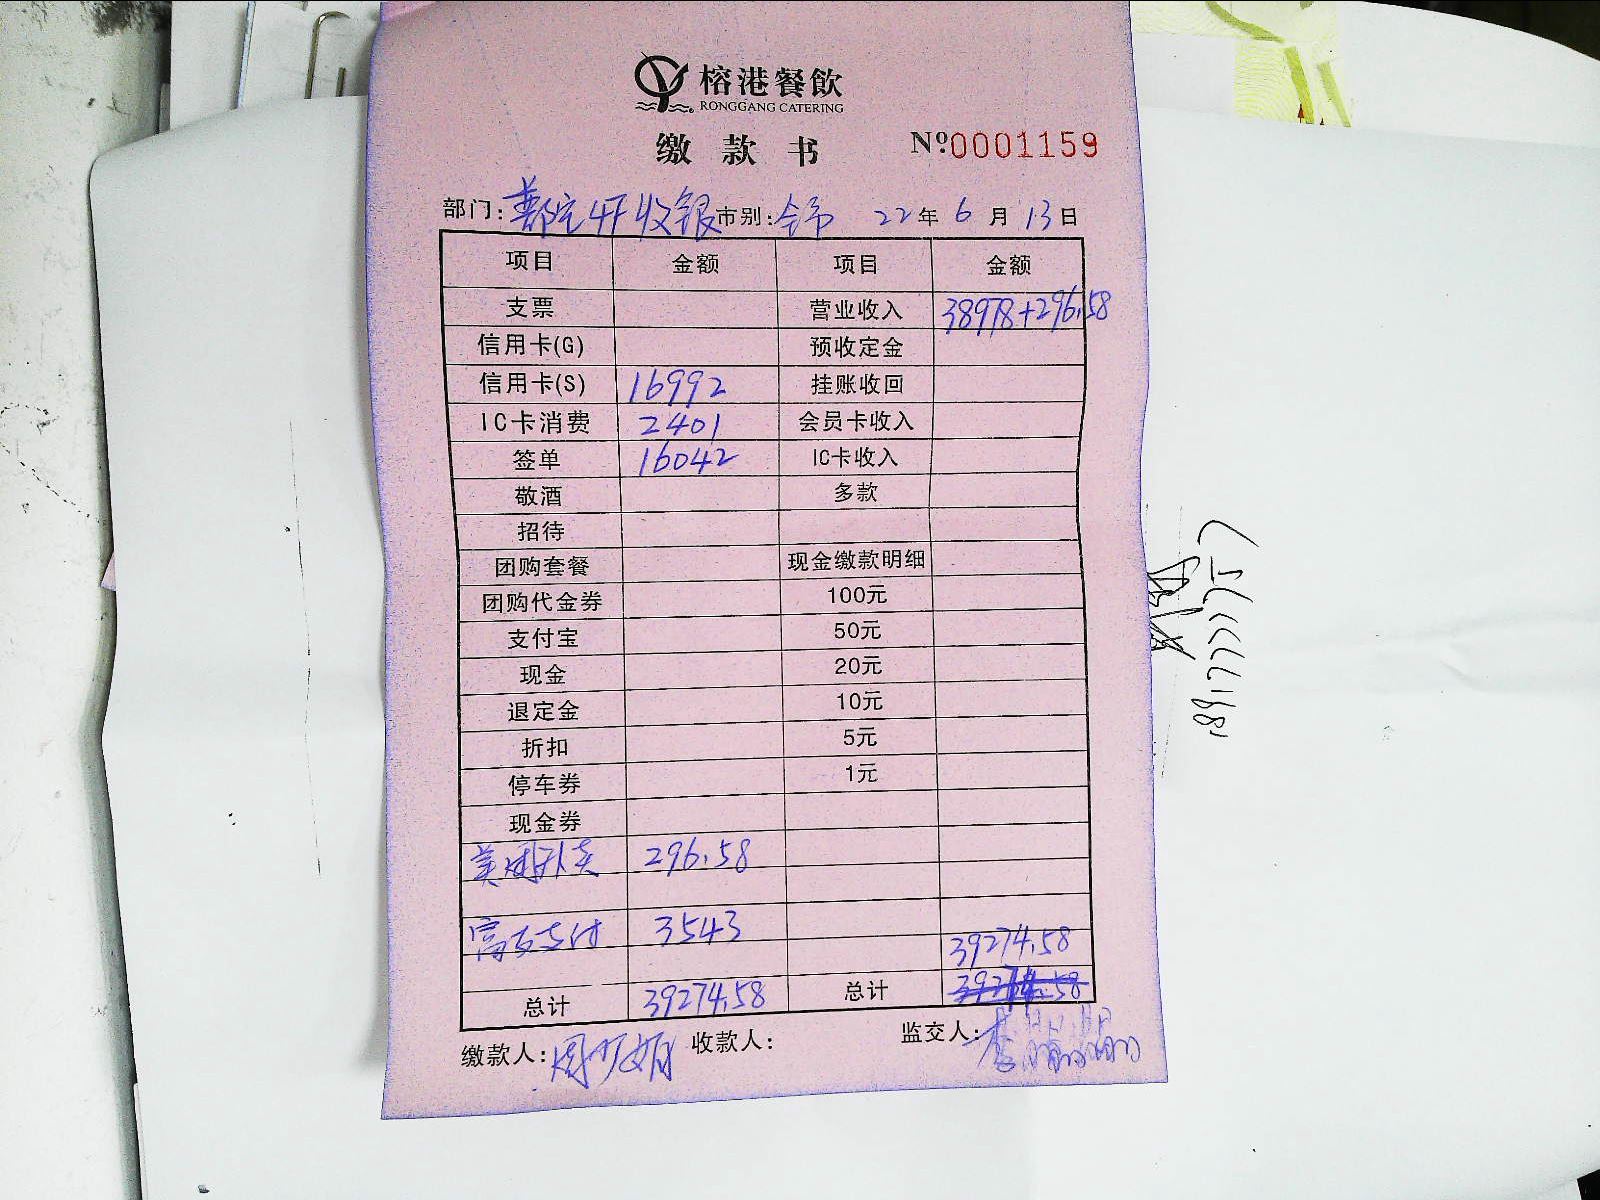 榕港餐飲
RONGGANG CATERING
缴款书 Nº0001159
部门: 收银 市别: 22年6月13日
项目 金额 项目 金额
支票 营业收入 38978+296.58
信用卡(G) 预收定金
信用卡(S) 16992 挂账收回
IC卡消费 2401 会员卡收入
签单 16042 IC卡收入
敬酒 多款
招待
团购套餐 现金缴款明细
团购代金券 100元
支付宝 50元
现金 20元
退定金 10元
折扣 5元
停车券 1元
现金券
美团外卖 296.58
支付 3543
39274.58
总计 39274.58 总计
缴款人: 收款人: 监交人: